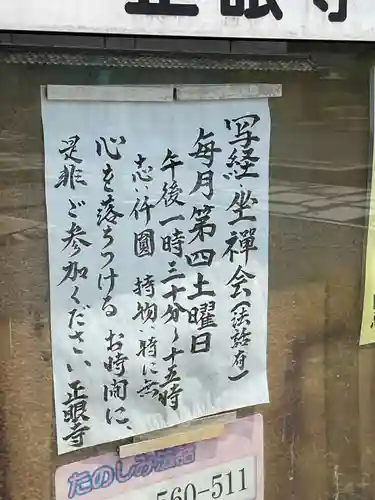 正眼寺
写経・坐禅会(法話有)
毎月第四土曜日
午後一時三十分〜十五時
志:仟圓 持物:特に無
心を落ちつける お時間に、
是非ご参加ください 正眼寺
たのしみ
560-511